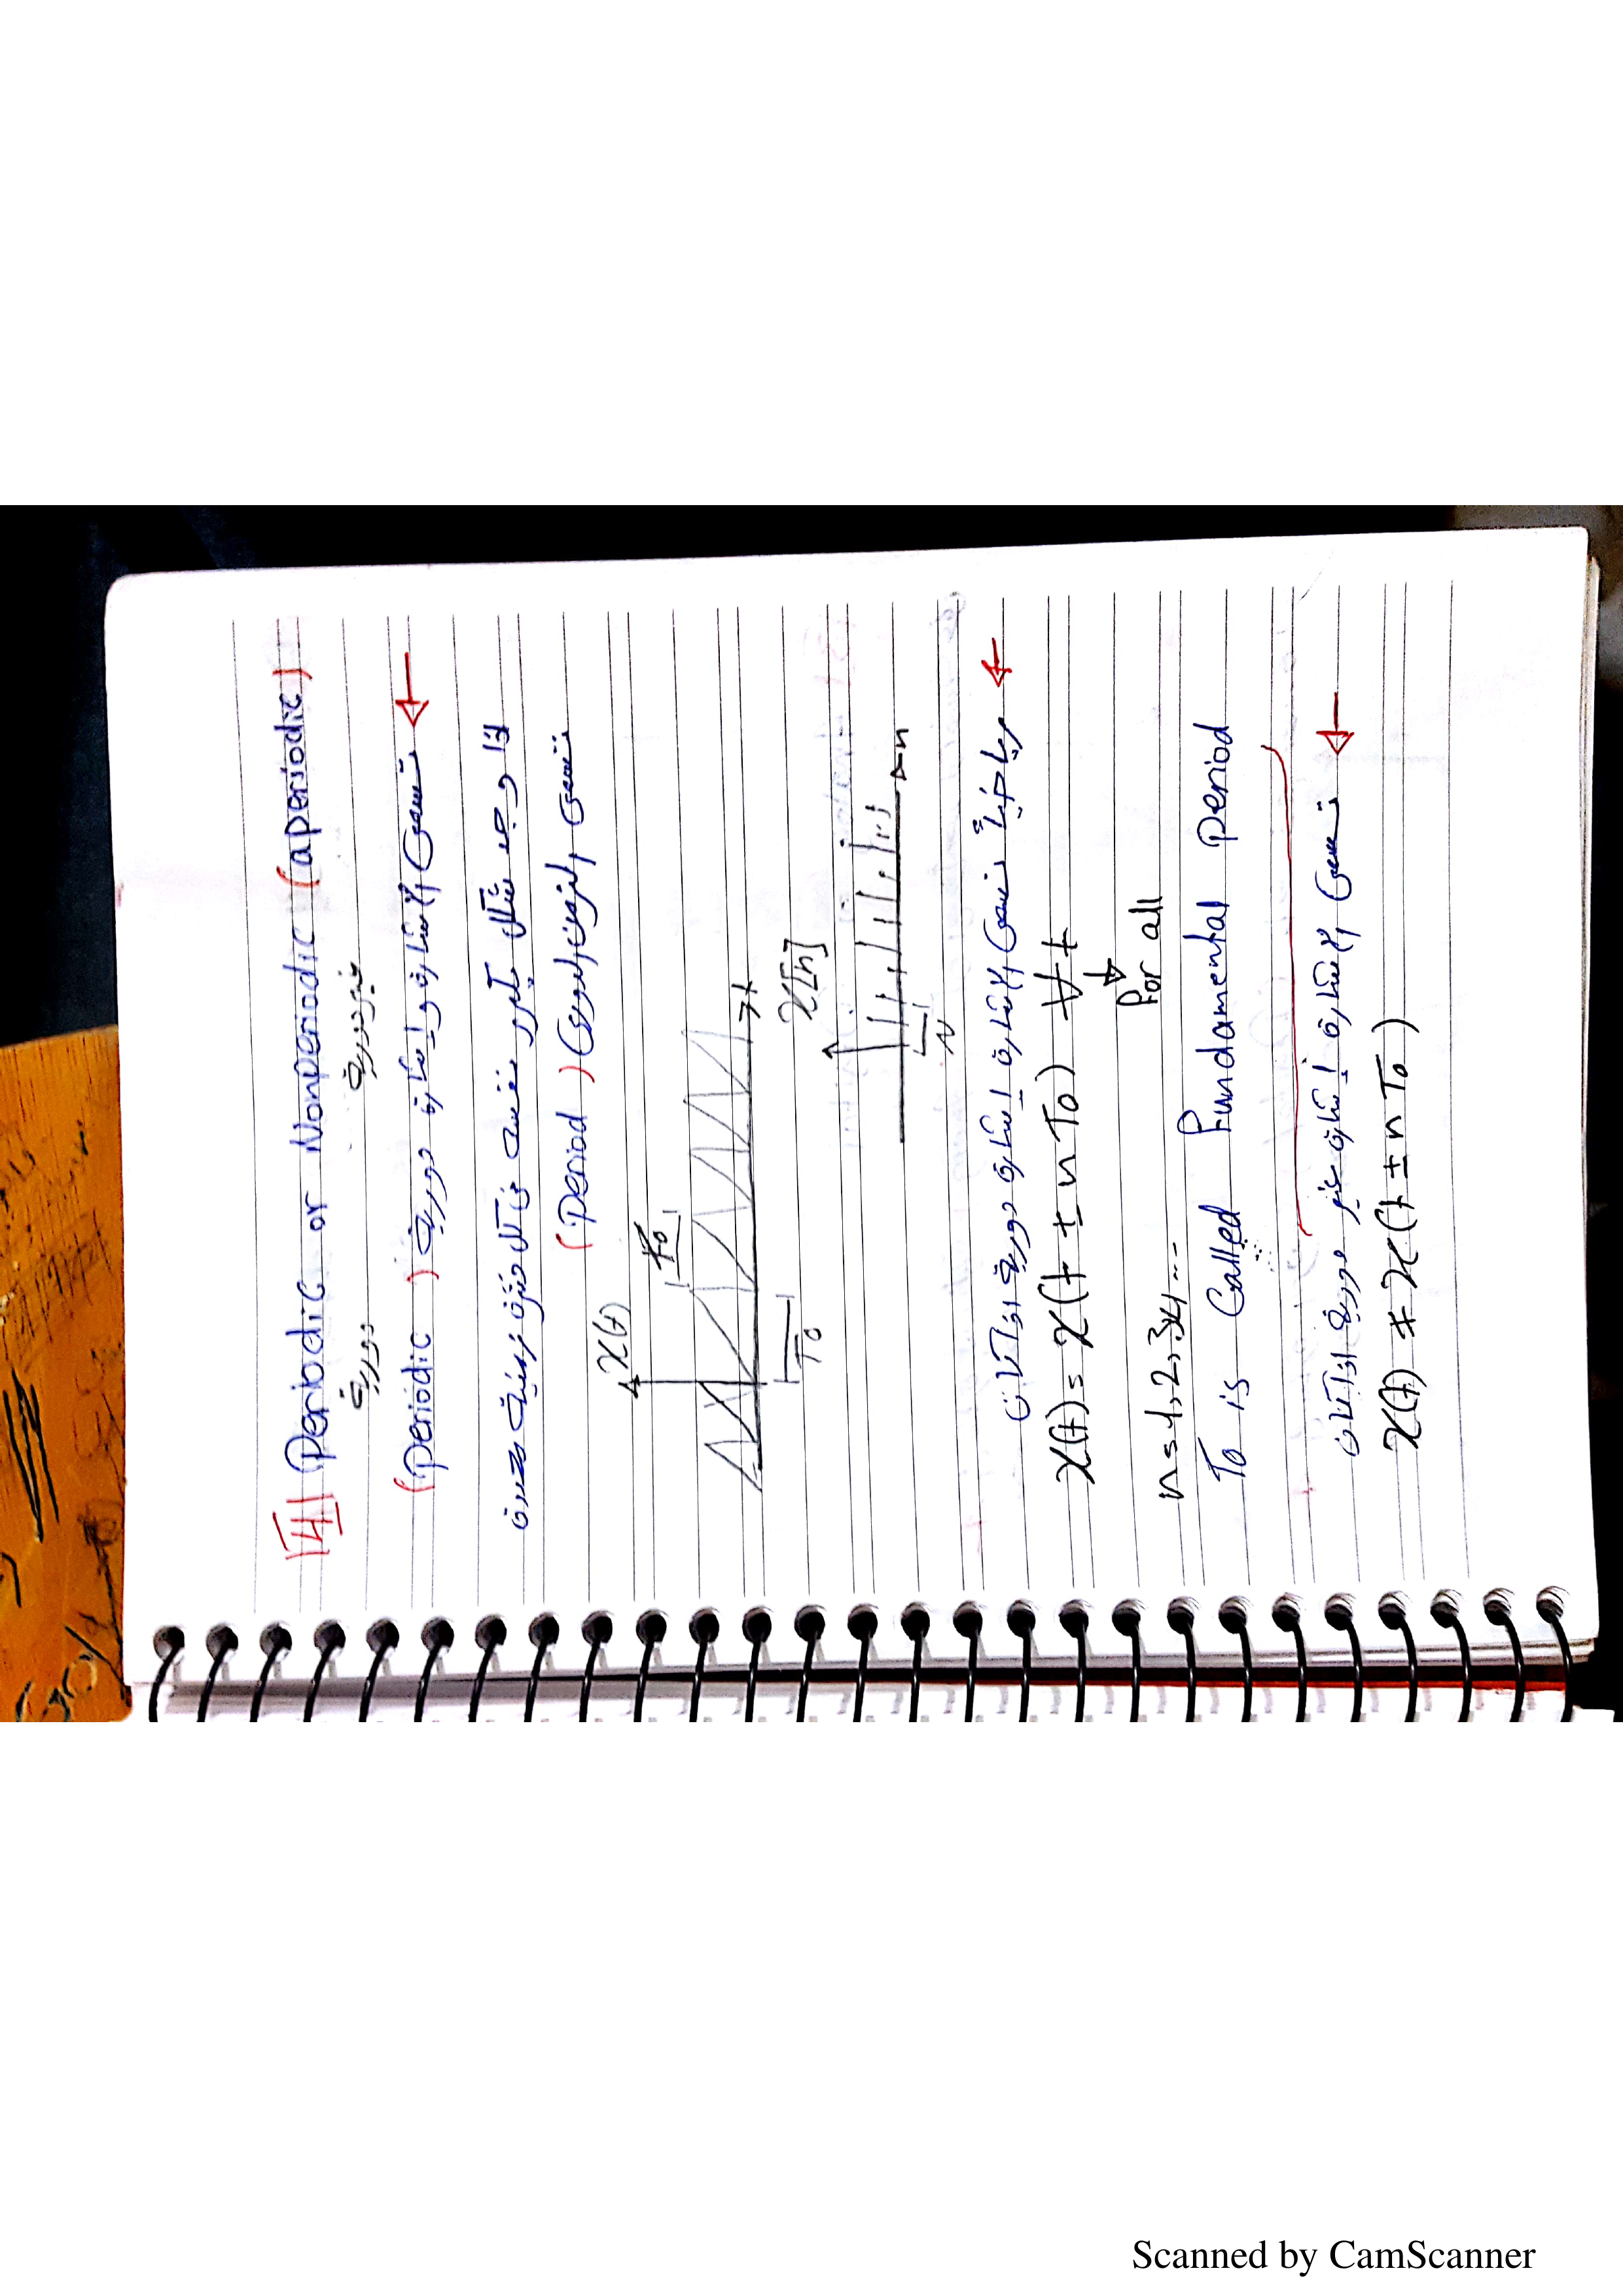 [4] Periodic or Nonperiodic (aperiodic)
دورية غير دورية
تسمى الإشارة إشارة دورية (Periodic)
إذا وجد شكل يكرر نفسه في كل فترة زمنية محددة
تسمى الزمن الدوري (Period)
x(t)
T0
t
T0
x[n]
n
N
رياضياً تسمى الإشارة إشارة دورية إذا كان
x(t) = x(t ± nT0) ∀ t
for all
n = 1, 2, 3, 4, ...
T0 is Called fundamental period
تسمى الإشارة إشارة غير دورية إذا كان
x(t) ≠ x(t ± nT0)
Scanned by CamScanner